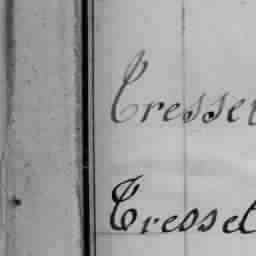 Cresset
Cresset